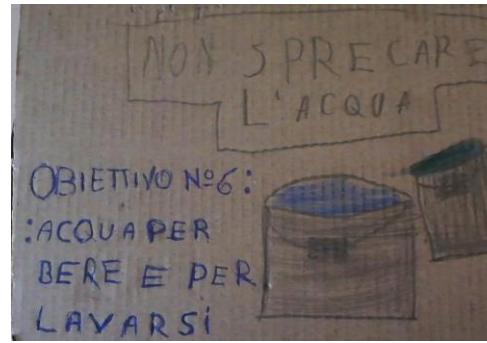 NON SPRECARE
L'ACQUA
OBIETTIVO Nº6:
:ACQUA PER
BERE E PER
LAVARSI